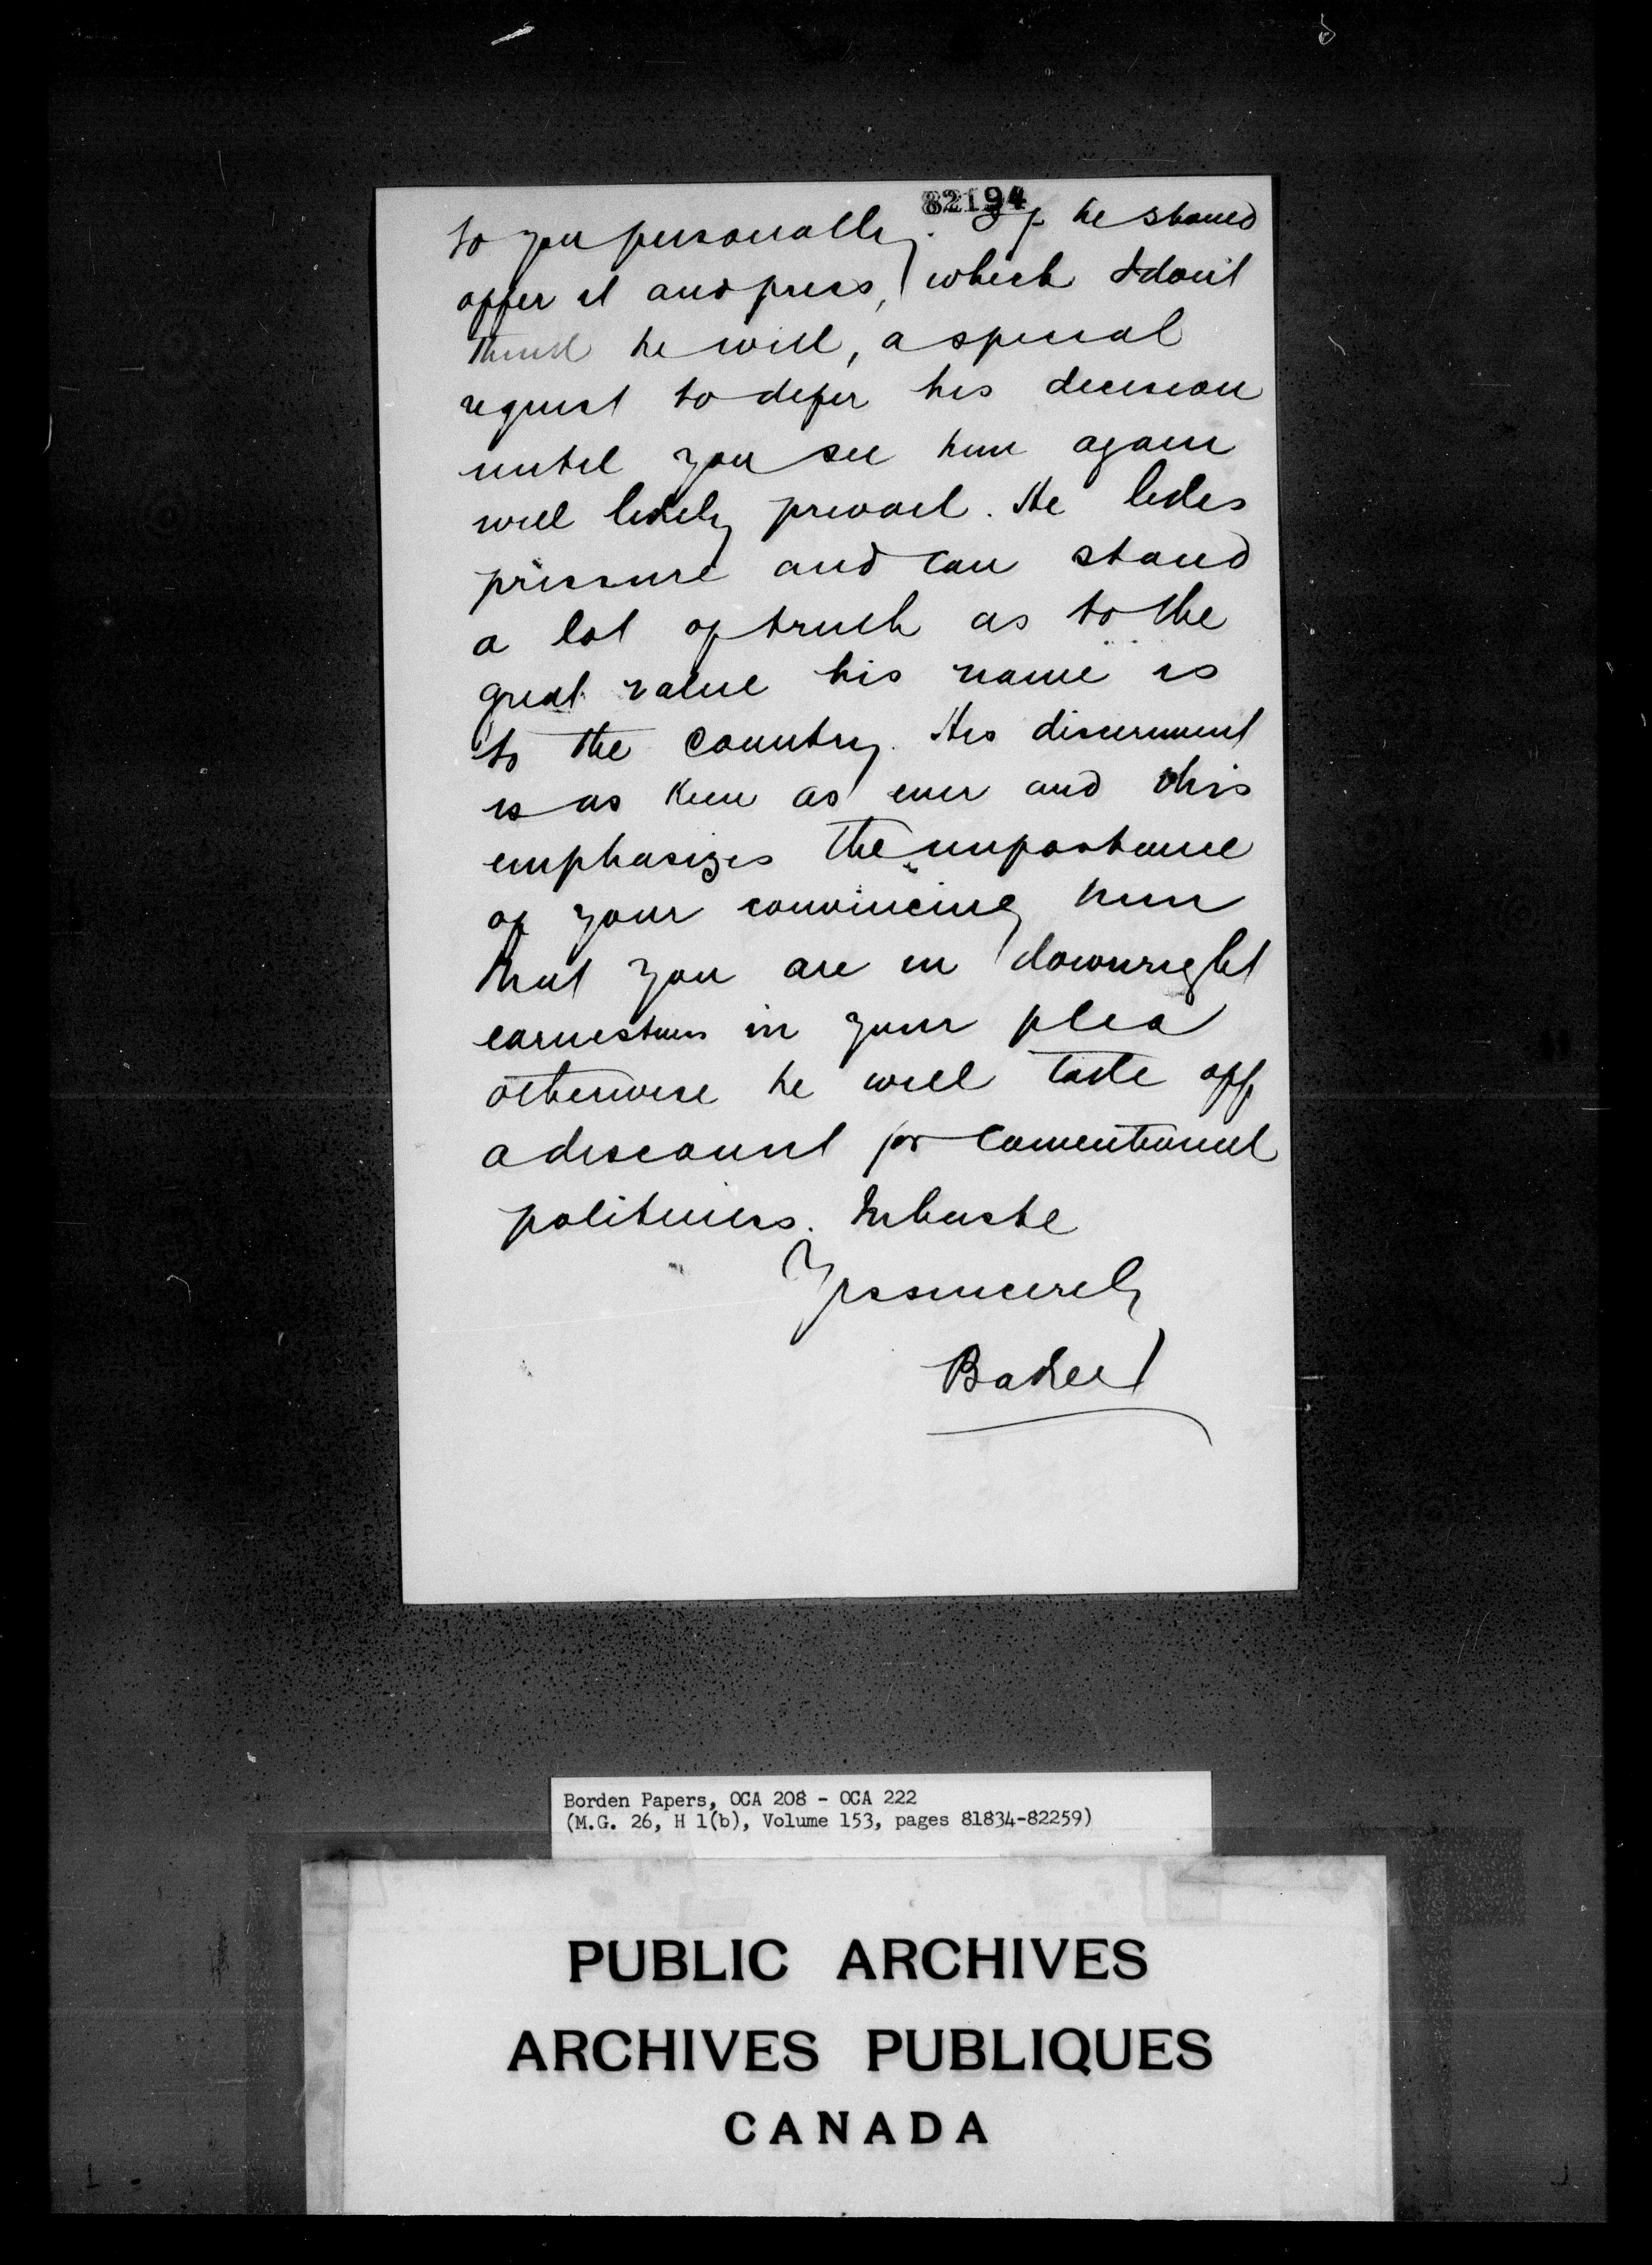 82194
to you personally. If he should
offer it and press, which I don't
think he will, a special
request to defer his decision
until you see him again
will likely prevail. He likes
pressure and can stand
a lot of truth as to the
great value his name is
to the country. His discernment
is as keen as ever and this
emphasizes the importance
of your convincing him
that you are in downright
earnestness in your plea
otherwise he will take off
a discount for conventional
politeness. In haste
Yrs sincerely
Borden Papers, OCA 208 - OCA 222
(M.G. 26, H 1(b), Volume 153, pages 81834-82259)
PUBLIC ARCHIVES
ARCHIVES PUBLIQUES
CANADA